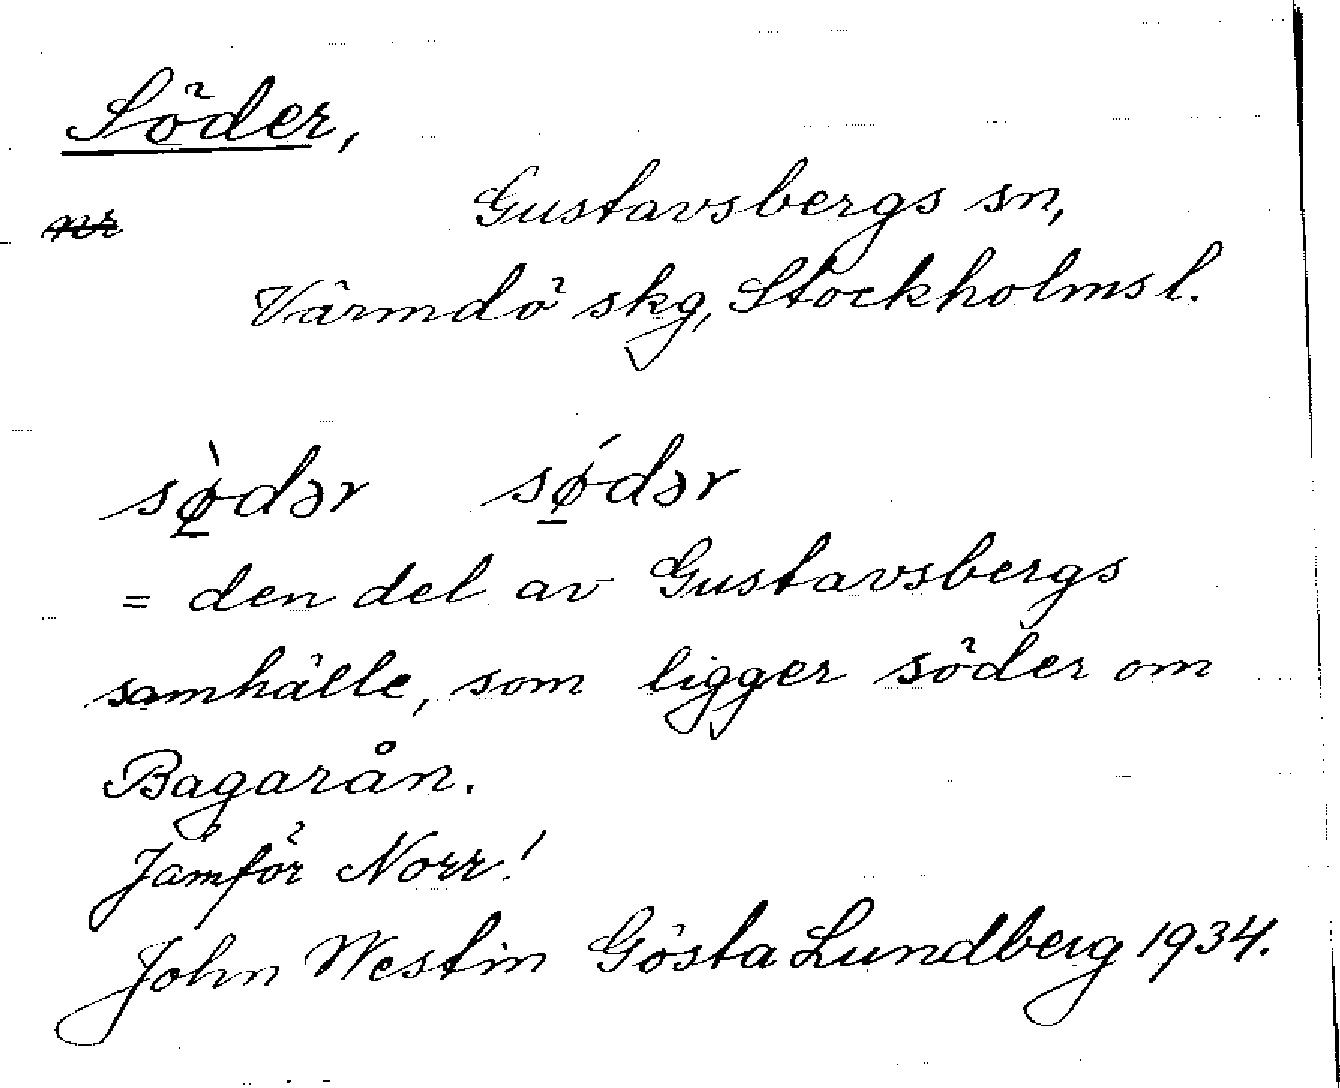 Söder,
Gustavsbergs sn,
Värmdö skg, Stockholms l.
sø̱̀dər sǿ̱dər
= den del av Gustavsbergs
samhälle, som ligger söder om
Bagarån.
Jämför Norr!
John Westin Gösta Lundberg 1934.